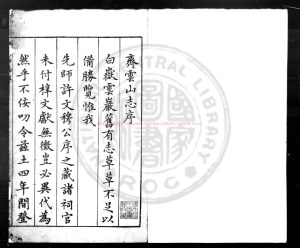 齊雲山志序
白嶽雲巖舊有志草草不足以
備勝覽惟我
先師許文穆公序之藏諸祠官
未付梓文獻無徵豈必異代為
然乎不佞叨令茲土四年間登
CENTRAL LIBRARY